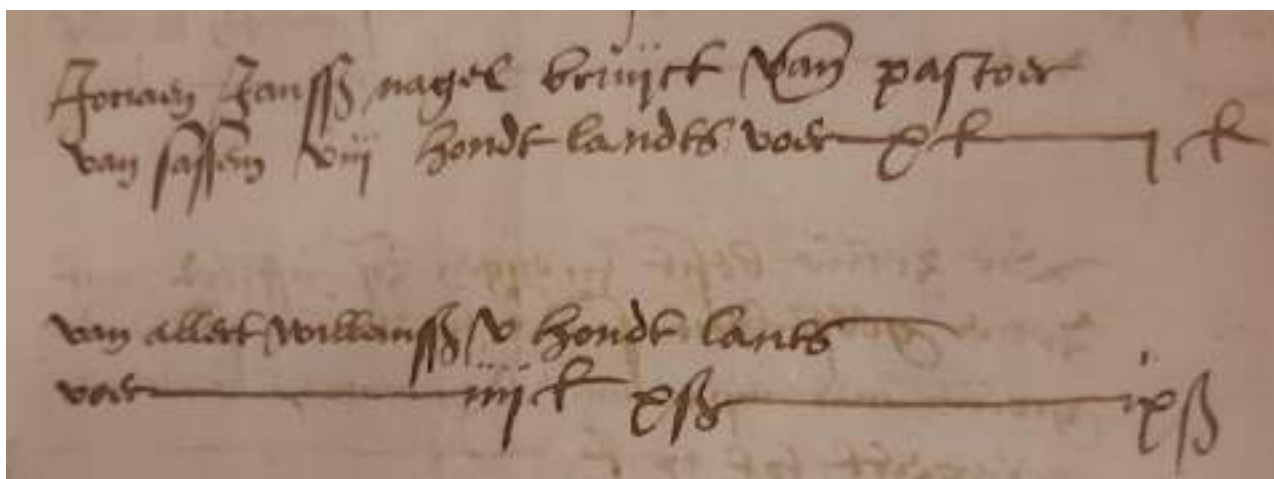 Joriaen Janssz nagel bruijct van pastoer
van sassem viij hondt landts voer x £ j £
van allert willemssz v hondt lants
voer iiij £ x ß ix ß